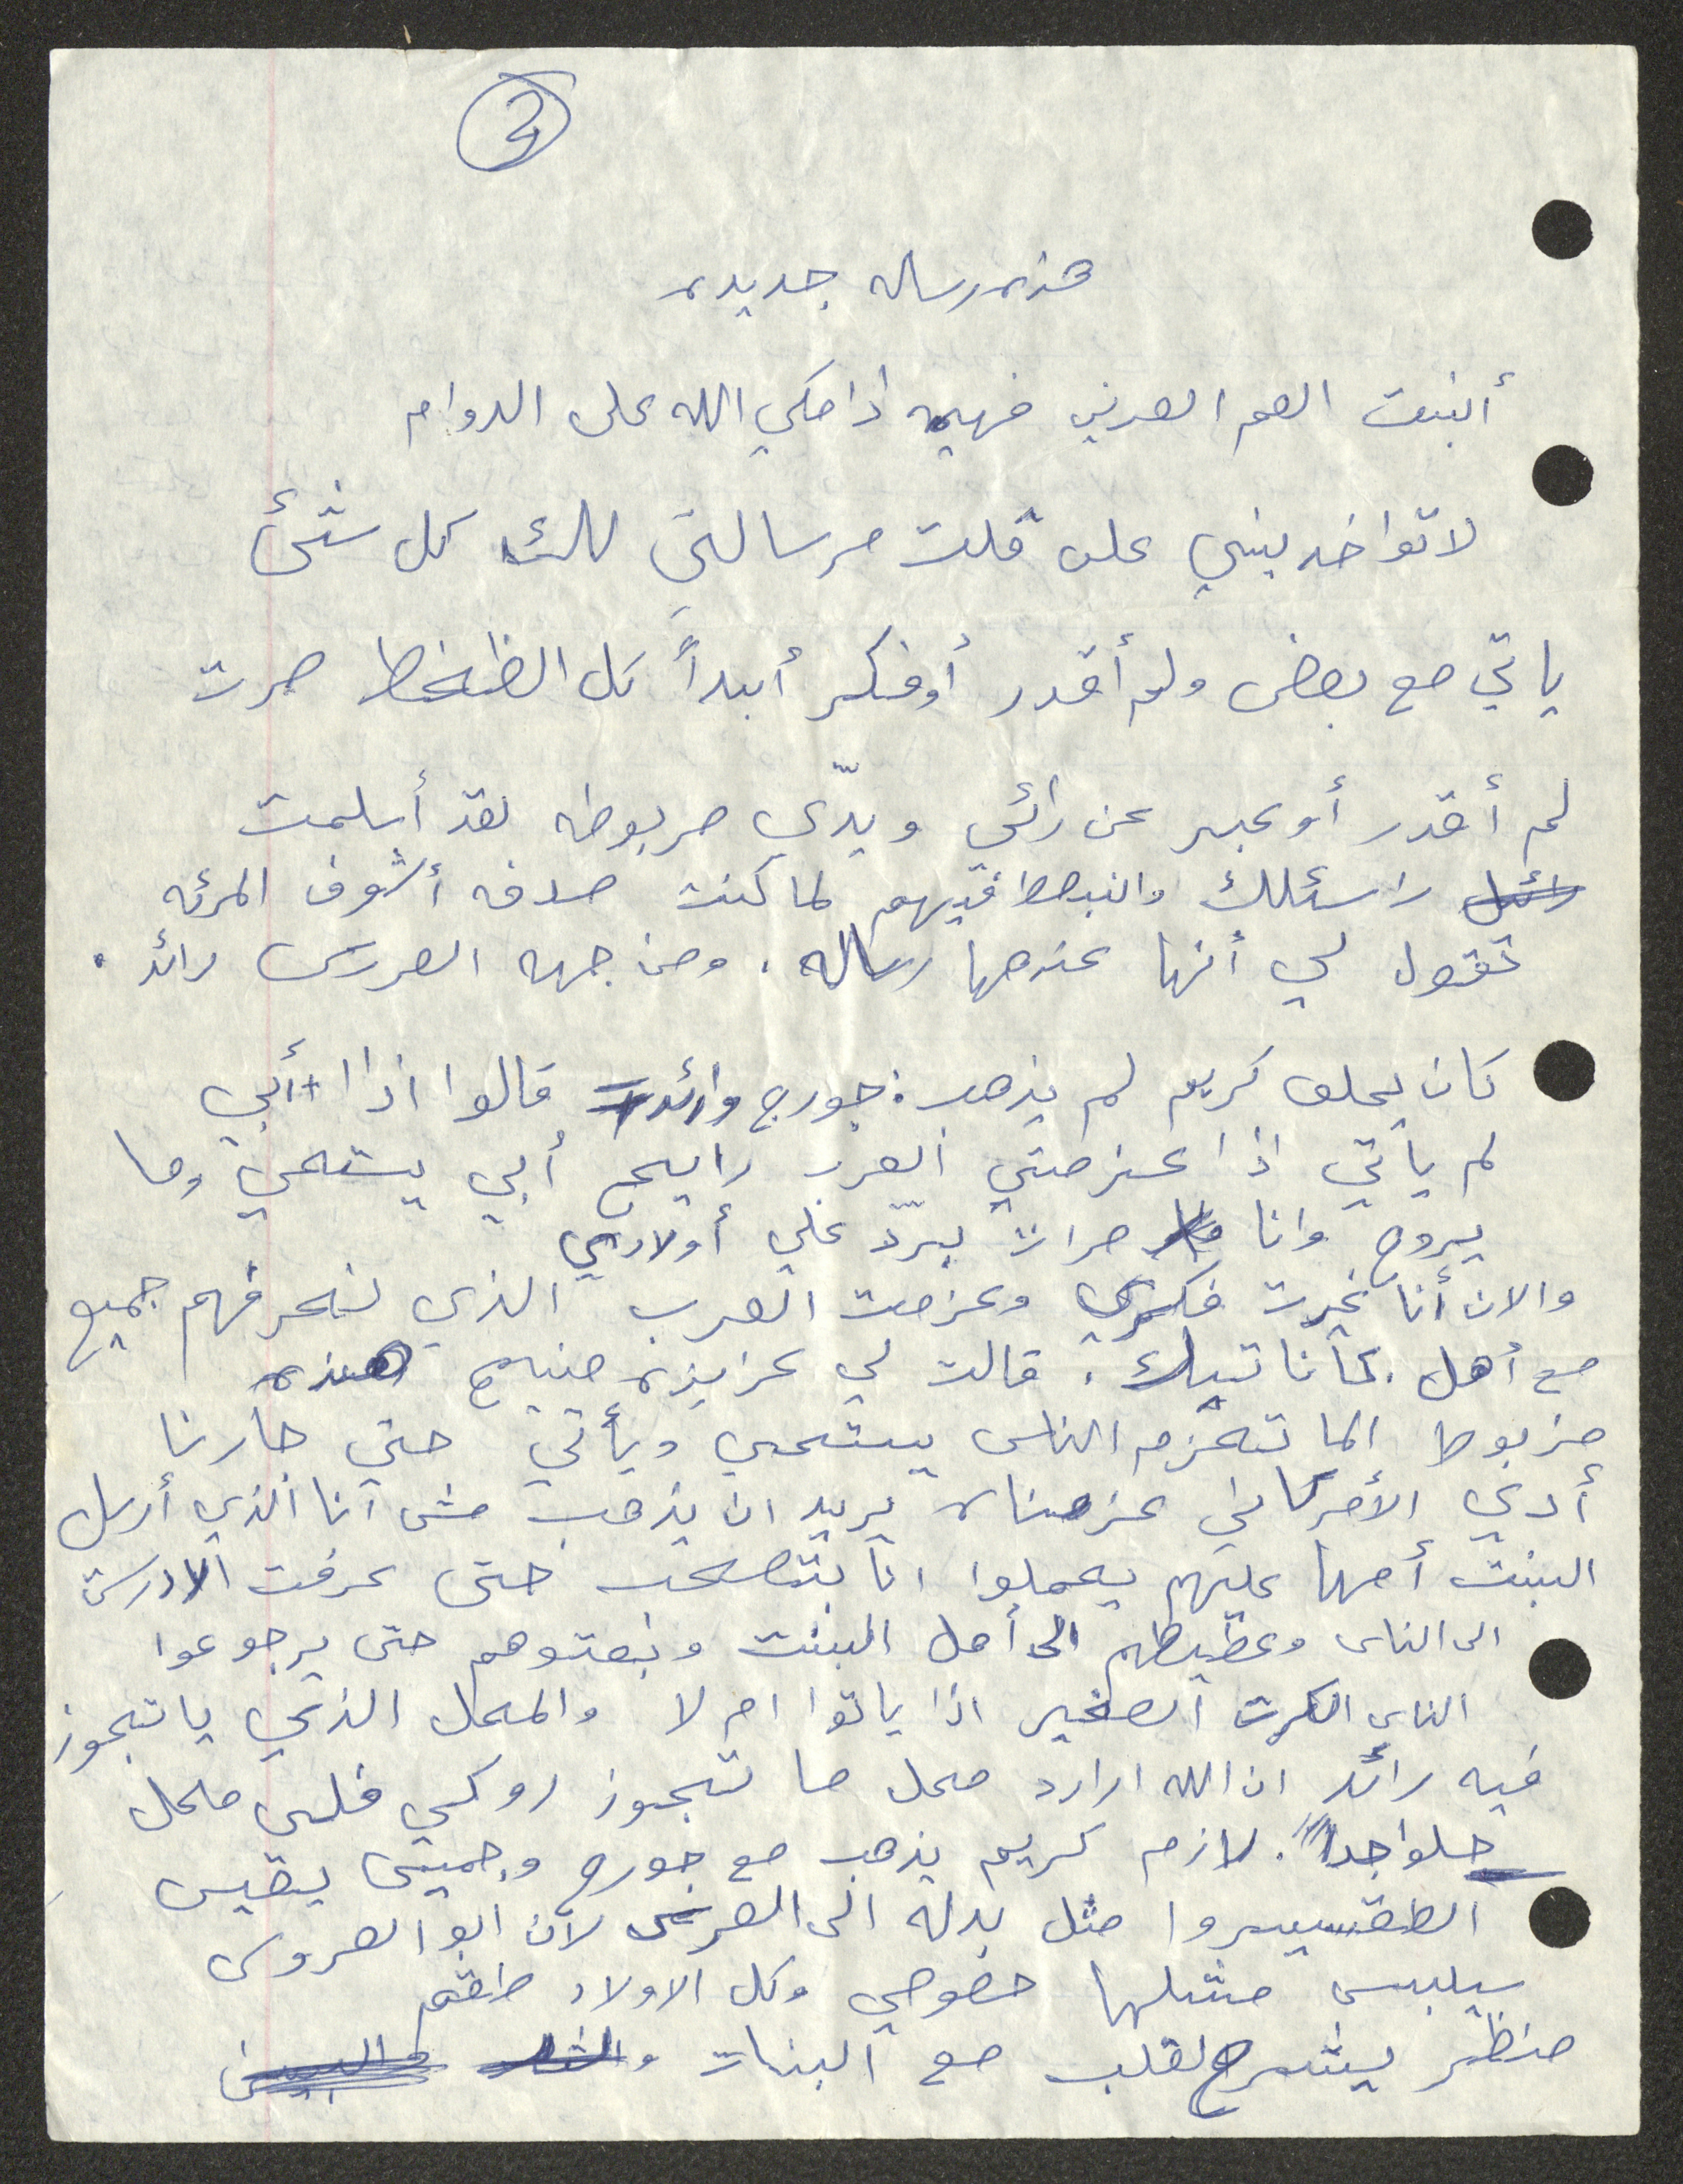 2
هذه رساله جديده
أبنت العم العزيز فهيمه ادامكي الله على الدوام
لا تواخدينني على قلت مرسالتي لك كل شئ
ياتي مع بعض ولم أقدر أوفكر أبداً كل الظغط صرت
لم أقدر أوعبر عن رائي ويدّي مربوطه لقد أسلمت
راسئلك وانبصط فيهم لما كنت صدفه أشوف المرئه
تقول لي أنها عندها رساله. ومن جهه العرس رائد.
كان يحلف كريم لم يذهب. جورج ورائد قالوا اذا أبي
لم ياتي اذا عزمتي العرب رايح أبي يستحي وما
يروح وانا مرات يردّ علي أولادي
والان أنا غيرت فكري وعزمت العرب الذي نعرفهم جميع
مع أهل. قالت لي عزيزه منيح هذه
مزبوط الما تعزم الناس يستحي ويأتي حتي جارنا
أدي الأمركاني عزمناه يريد ان يذهب مش انا الذي أرسل
البنت أمها عليهم يعملوا انا بتصعب حتى عرفت الادرس
الى الناس وعطيطهم الى أهل البنت وبعتوهم حتى يرجوعوا
الناس الكرت الصغير اذا ياتوا ام لا والمحل الذي ياتجوز
فيه رائد ان الله اراد محل ما تجوز روكي فلس محل
حلوا جداً. لازم كريم يذهب مع جورج وجميس يقيس
الطقسيروا مثل بدله الى العرس لأن ابو العروس
سيلبس مثلها خصوصي وكل الاولاد طقم
منظر يشرح لقلب مع البنات